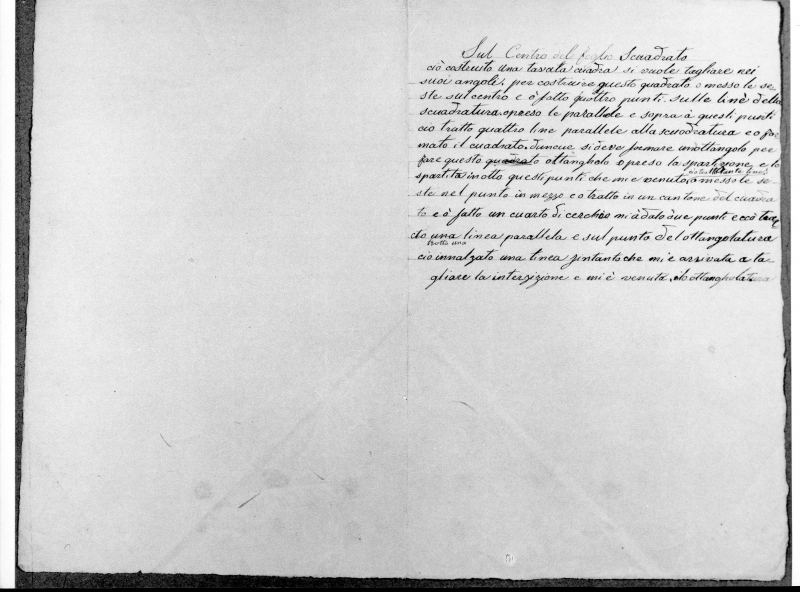 Sul Centro del foglio Scuadrato
ciò costruito una tavata cuadra si vuole tagliare nei
suoi angoli. per costruire questo quadrato o messo le se-
ste sul centro e ò fatto quattro punti. Sulle linè della
scuadratura. o preso le parallele e sopra à questi punti
cio tratto quattro line parallele alla scuodratura e o for
mato il cuadrato. duncue si deve formare unottangolo per
fare questo quadrato ottangholo o preso la spartizione e lo
spartita in otto questi punti che mi e venuto, o messo le se-
ste nel punto in mezzo e o tratto in un cantone del cuadra
to e ò fatto un cuarto di cerchio mi à dato due punti e cco trac
to una linea parallela e sul punto del ottangolatura
tratto una
cio innalzato una linea fintanto che mi e arrivata a ta-
gliare la intersizione e mi è venuta ottangholatura